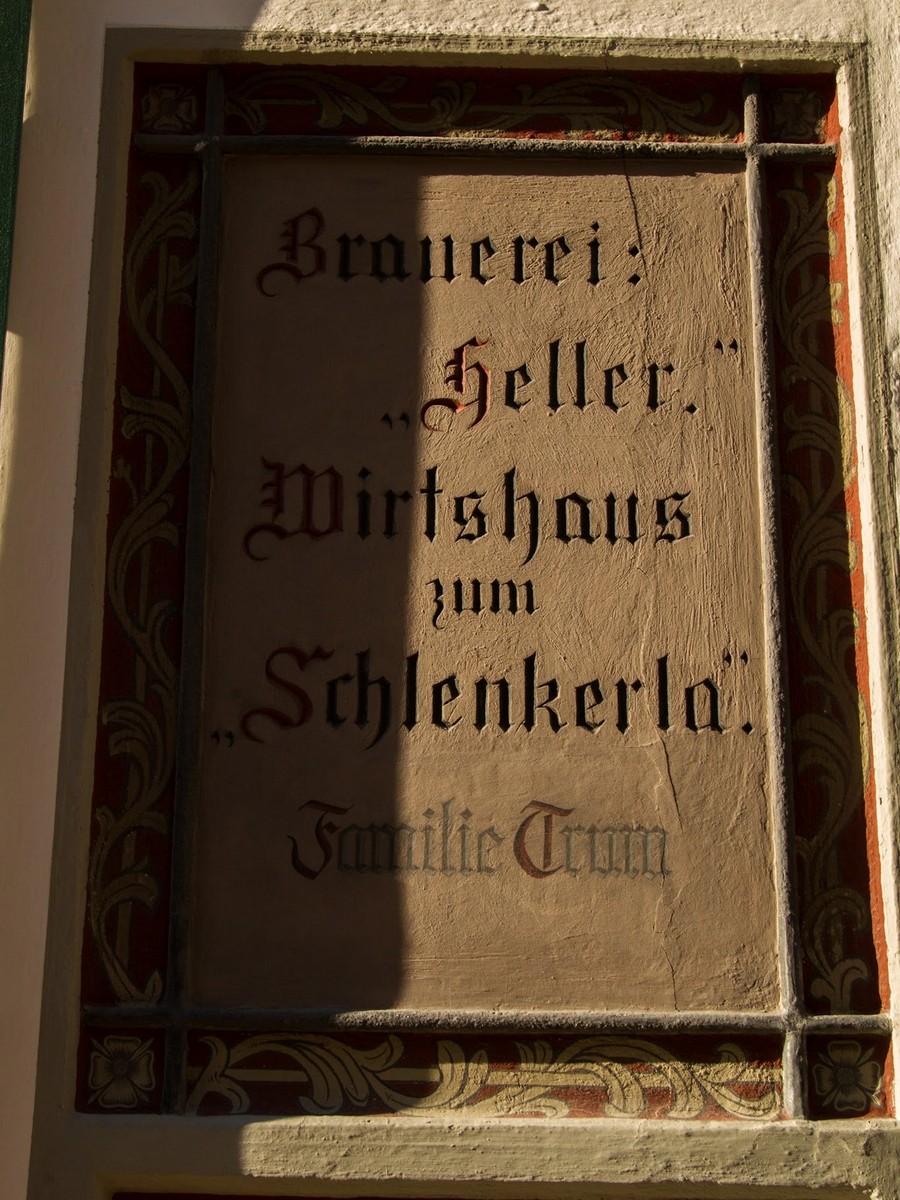 Brauerei:
„Heller.”
Wirtshaus
zum
„Schlenkerla”.
Familie Trum